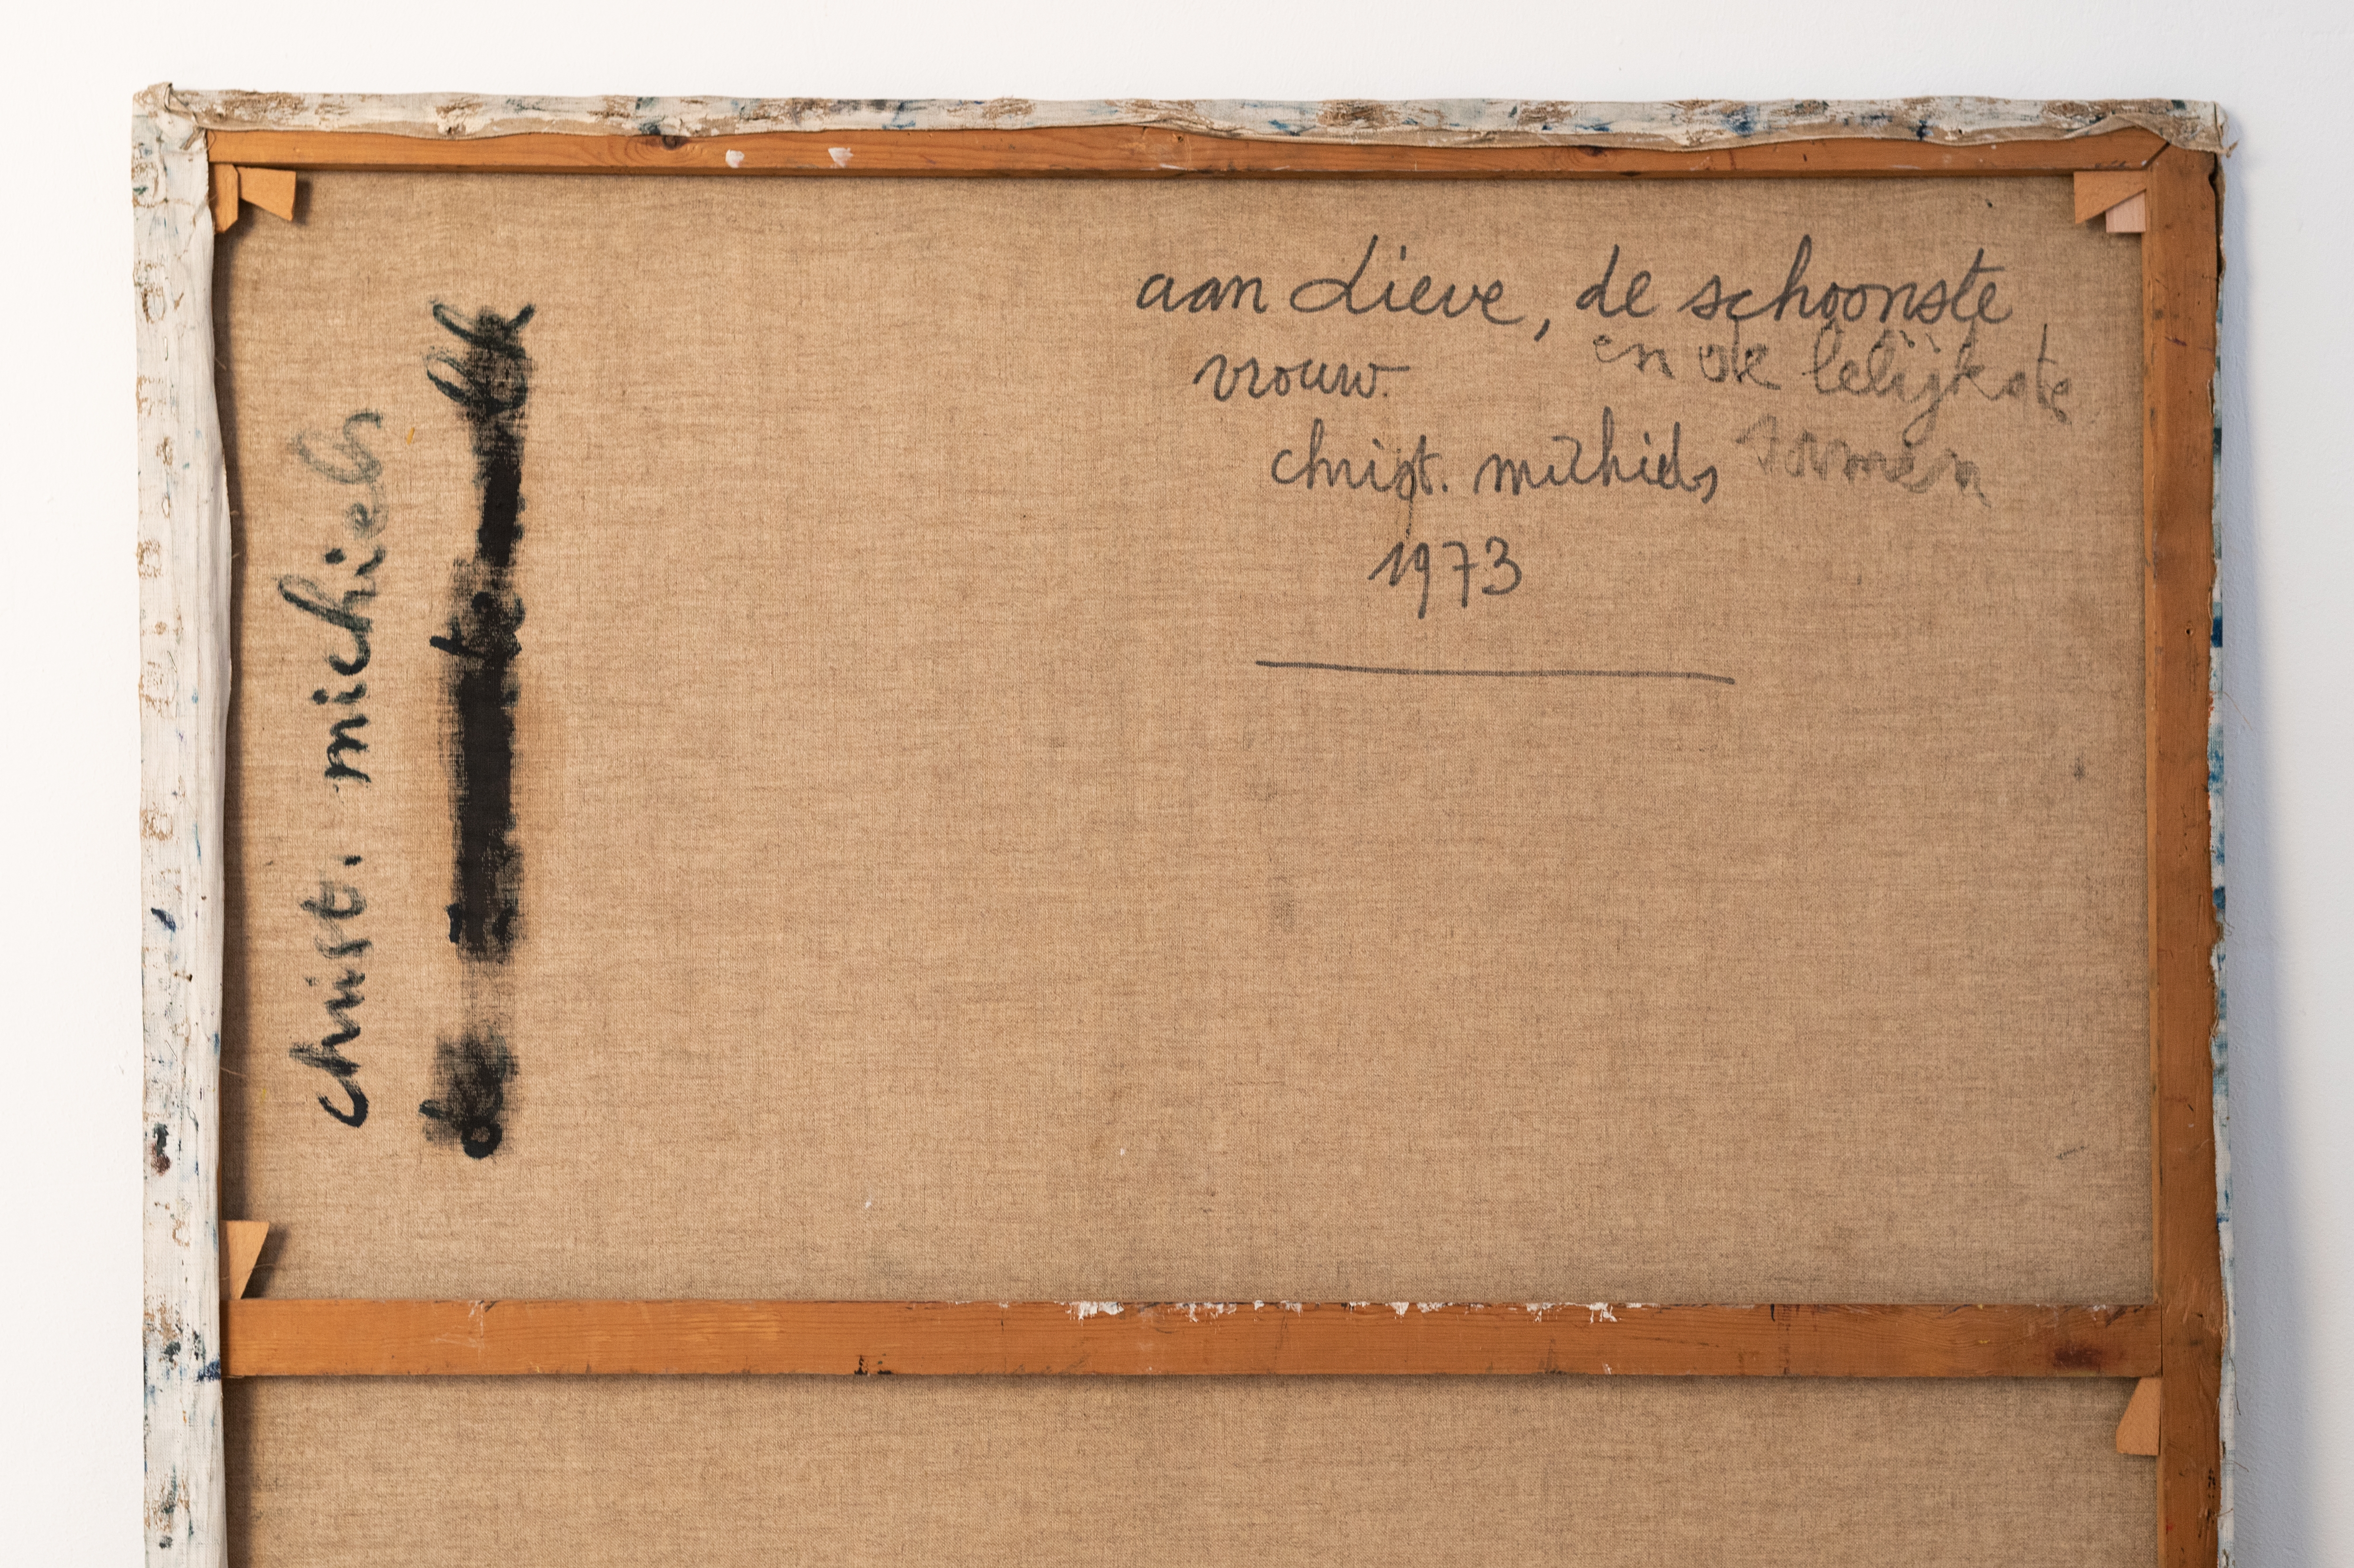 aan Lieve, de schoonste
en de lelijkste
vrouw.
samen
christ. michiels
1973
christ. michiels
de